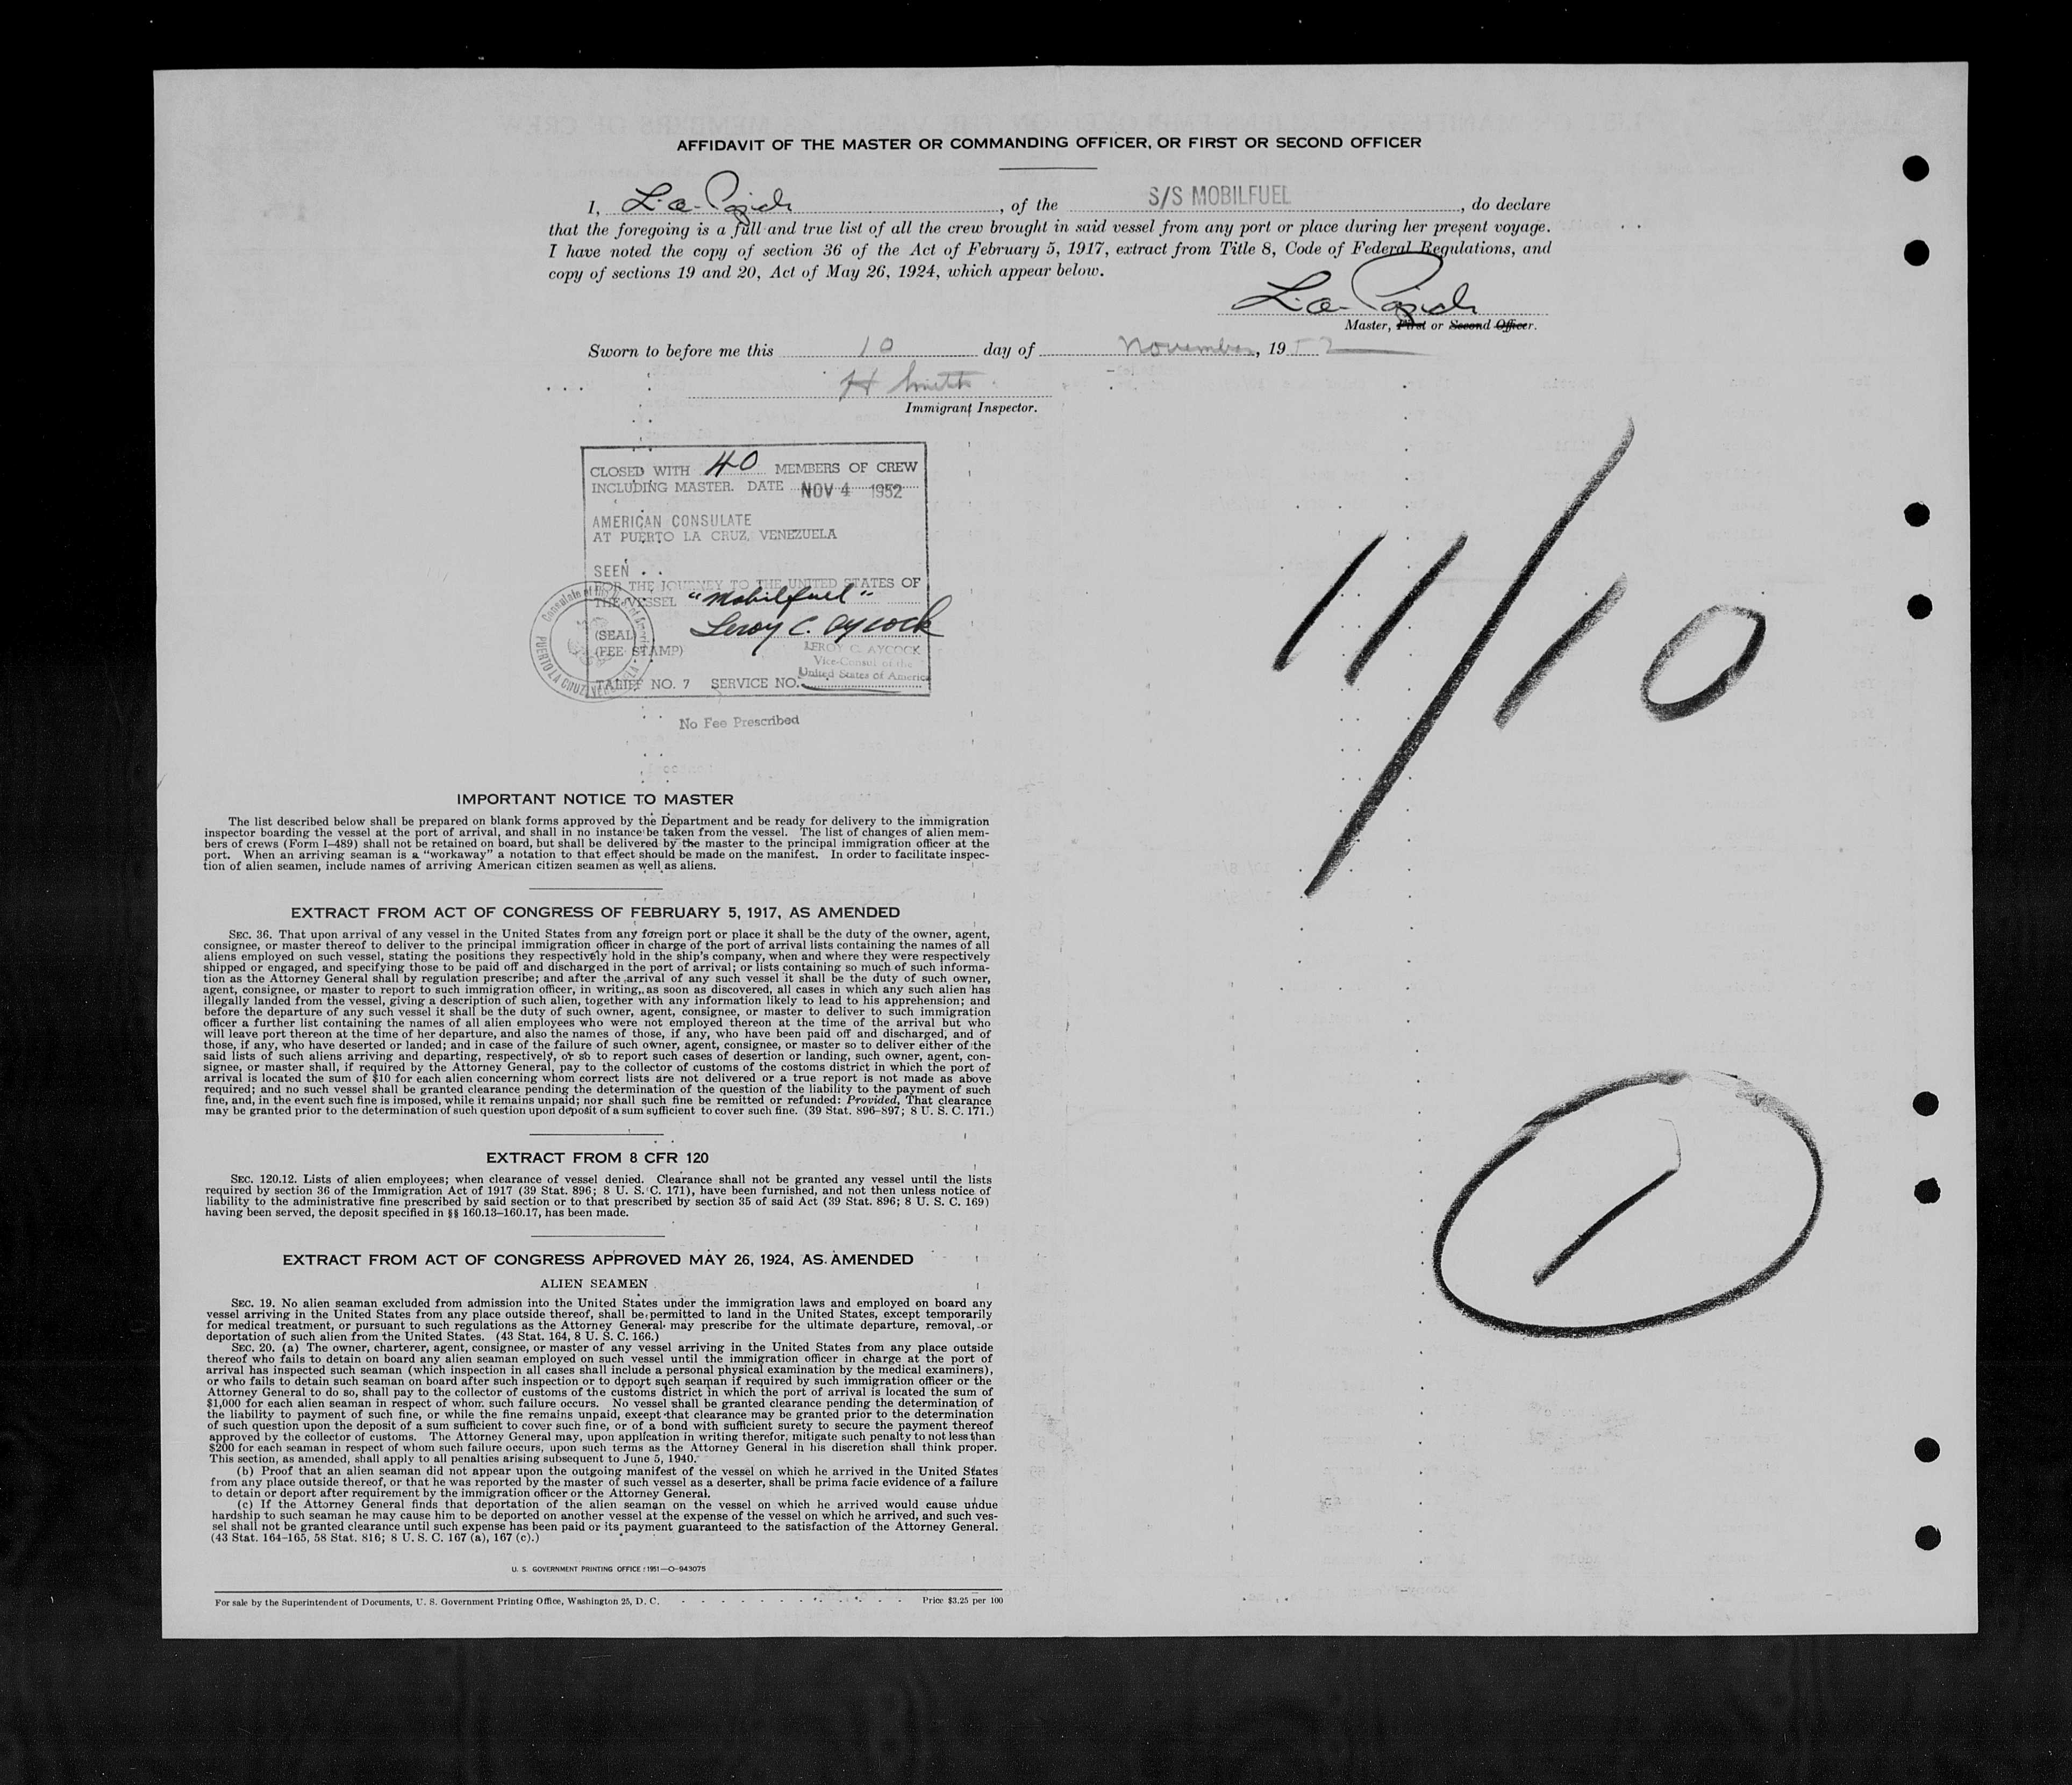 AFFIDAVIT OF THE MASTER OR COMMANDING OFFICER, OR FIRST OR SECOND OFFICER
I, L. A. , of the S/S MOBILFUEL, do declare
that the foregoing is a full and true list of all the crew brought in said vessel from any port or place during her present voyage.
I have noted the copy of section 36 of the Act of February 5, 1917, extract from Title 8, Code of Federal Regulations, and
copy of sections 19 and 20, Act of May 26, 1924, which appear below.
L. A.
Master, First or Second Officer.
Sworn to before me this 10 day of November, 1952
H Smith
Immigrant Inspector.
CLOSED WITH 40 MEMBERS OF CREW
INCLUDING MASTER. DATE NOV 4 1952
AMERICAN CONSULATE
AT PUERTO LA CRUZ, VENEZUELA
SEEN
FOR THE JOURNEY TO THE UNITED STATES OF
THE VESSEL "Mobilfuel"
Leroy C. Aycock
(SEAL)
(FEE STAMP) LEROY C. AYCOCK
Vice-Consul of the
United States of America
TARIFF NO. 7 SERVICE NO.
PUERTO LA CRUZ, VENEZUELA
No Fee Prescribed
11/10
1
IMPORTANT NOTICE TO MASTER
The list described below shall be prepared on blank forms approved by the Department and be ready for delivery to the immigration
inspector boarding the vessel at the port of arrival, and shall in no instance be taken from the vessel. The list of changes of alien mem-
bers of crews (Form I–489) shall not be retained on board, but shall be delivered by the master to the principal immigration officer at the
port. When an arriving seaman is a "workaway" a notation to that effect should be made on the manifest. In order to facilitate inspec-
tion of alien seamen, include names of arriving American citizen seamen as well as aliens.
EXTRACT FROM ACT OF CONGRESS OF FEBRUARY 5, 1917, AS AMENDED
SEC. 36. That upon arrival of any vessel in the United States from any foreign port or place it shall be the duty of the owner, agent,
consignee, or master thereof to deliver to the principal immigration officer in charge of the port of arrival lists containing the names of all
aliens employed on such vessel, stating the positions they respectively hold in the ship's company, when and where they were respectively
shipped or engaged, and specifying those to be paid off and discharged in the port of arrival; or lists containing so much of such informa-
tion as the Attorney General shall by regulation prescribe; and after the arrival of any such vessel it shall be the duty of such owner,
agent, consignee, or master to report to such immigration officer, in writing, as soon as discovered, all cases in which any such alien has
illegally landed from the vessel, giving a description of such alien, together with any information likely to lead to his apprehension; and
before the departure of any such vessel it shall be the duty of such owner, agent, consignee, or master to deliver to such immigration
officer a further list containing the names of all alien employees who were not employed thereon at the time of the arrival but who
will leave port thereon at the time of her departure, and also the names of those, if any, who have been paid off and discharged, and of
those, if any, who have deserted or landed; and in case of the failure of such owner, agent, consignee, or master so to deliver either of the
said lists of such aliens arriving and departing, respectively, or so to report such cases of desertion or landing, such owner, agent, con-
signee, or master shall, if required by the Attorney General, pay to the collector of customs of the costoms district in which the port of
arrival is located the sum of $10 for each alien concerning whom correct lists are not delivered or a true report is not made as above
required; and no such vessel shall be granted clearance pending the determination of the question of the liability to the payment of such
fine, and, in the event such fine is imposed, while it remains unpaid; nor shall such fine be remitted or refunded: Provided, That clearance
may be granted prior to the determination of such question upon deposit of a sum sufficient to cover such fine. (39 Stat. 896–897; 8 U. S. C. 171.)
EXTRACT FROM 8 CFR 120
SEC. 120.12. Lists of alien employees; when clearance of vessel denied. Clearance shall not be granted any vessel until the lists
required by section 36 of the Immigration Act of 1917 (39 Stat. 896; 8 U. S. C. 171), have been furnished, and not then unless notice of
liability to the administrative fine prescribed by said section or to that prescribed by section 35 of said Act (39 Stat. 896; 8 U. S. C. 169)
having been served, the deposit specified in §§ 160.13–160.17, has been made.
EXTRACT FROM ACT OF CONGRESS APPROVED MAY 26, 1924, AS AMENDED
ALIEN SEAMEN
SEC. 19. No alien seaman excluded from admission into the United States under the immigration laws and employed on board any
vessel arriving in the United States from any place outside thereof, shall be permitted to land in the United States, except temporarily
for medical treatment, or pursuant to such regulations as the Attorney General may prescribe for the ultimate departure, removal, or
deportation of such alien from the United States. (43 Stat. 164, 8 U. S. C. 166.)
SEC. 20. (a) The owner, charterer, agent, consignee, or master of any vessel arriving in the United States from any place outside
thereof who fails to detain on board any alien seaman employed on such vessel until the immigration officer in charge at the port of
arrival has inspected such seaman (which inspection in all cases shall include a personal physical examination by the medical examiners),
or who fails to detain such seaman on board after such inspection or to deport such seaman if required by such immigration officer or the
Attorney General to do so, shall pay to the collector of customs of the customs district in which the port of arrival is located the sum of
$1,000 for each alien seaman in respect of whom such failure occurs. No vessel shall be granted clearance pending the determination of
the liability to payment of such fine, or while the fine remains unpaid, except that clearance may be granted prior to the determination
of such question upon the deposit of a sum sufficient to cover such fine, or of a bond with sufficient surety to secure the payment thereof
approved by the collector of customs. The Attorney General may, upon application in writing therefor, mitigate such penalty to not less than
$200 for each seaman in respect of whom such failure occurs, upon such terms as the Attorney General in his discretion shall think proper.
This section, as amended, shall apply to all penalties arising subsequent to June 5, 1940.
(b) Proof that an alien seaman did not appear upon the outgoing manifest of the vessel on which he arrived in the United States
from any place outside thereof, or that he was reported by the master of such vessel as a deserter, shall be prima facie evidence of a failure
to detain or deport after requirement by the immigration officer or the Attorney General.
(c) If the Attorney General finds that deportation of the alien seaman on the vessel on which he arrived would cause undue
hardship to such seaman he may cause him to be deported on another vessel at the expense of the vessel on which he arrived, and such ves-
sel shall not be granted clearance until such expense has been paid or its payment guaranteed to the satisfaction of the Attorney General.
(43 Stat. 164–165, 58 Stat. 816; 8 U. S. C. 167 (a), 167 (c).)
U. S. GOVERNMENT PRINTING OFFICE : 1951—O–943075
For sale by the Superintendent of Documents, U. S. Government Printing Office, Washington 25, D. C. - - - - - - - - - - - - Price $3.25 per 100